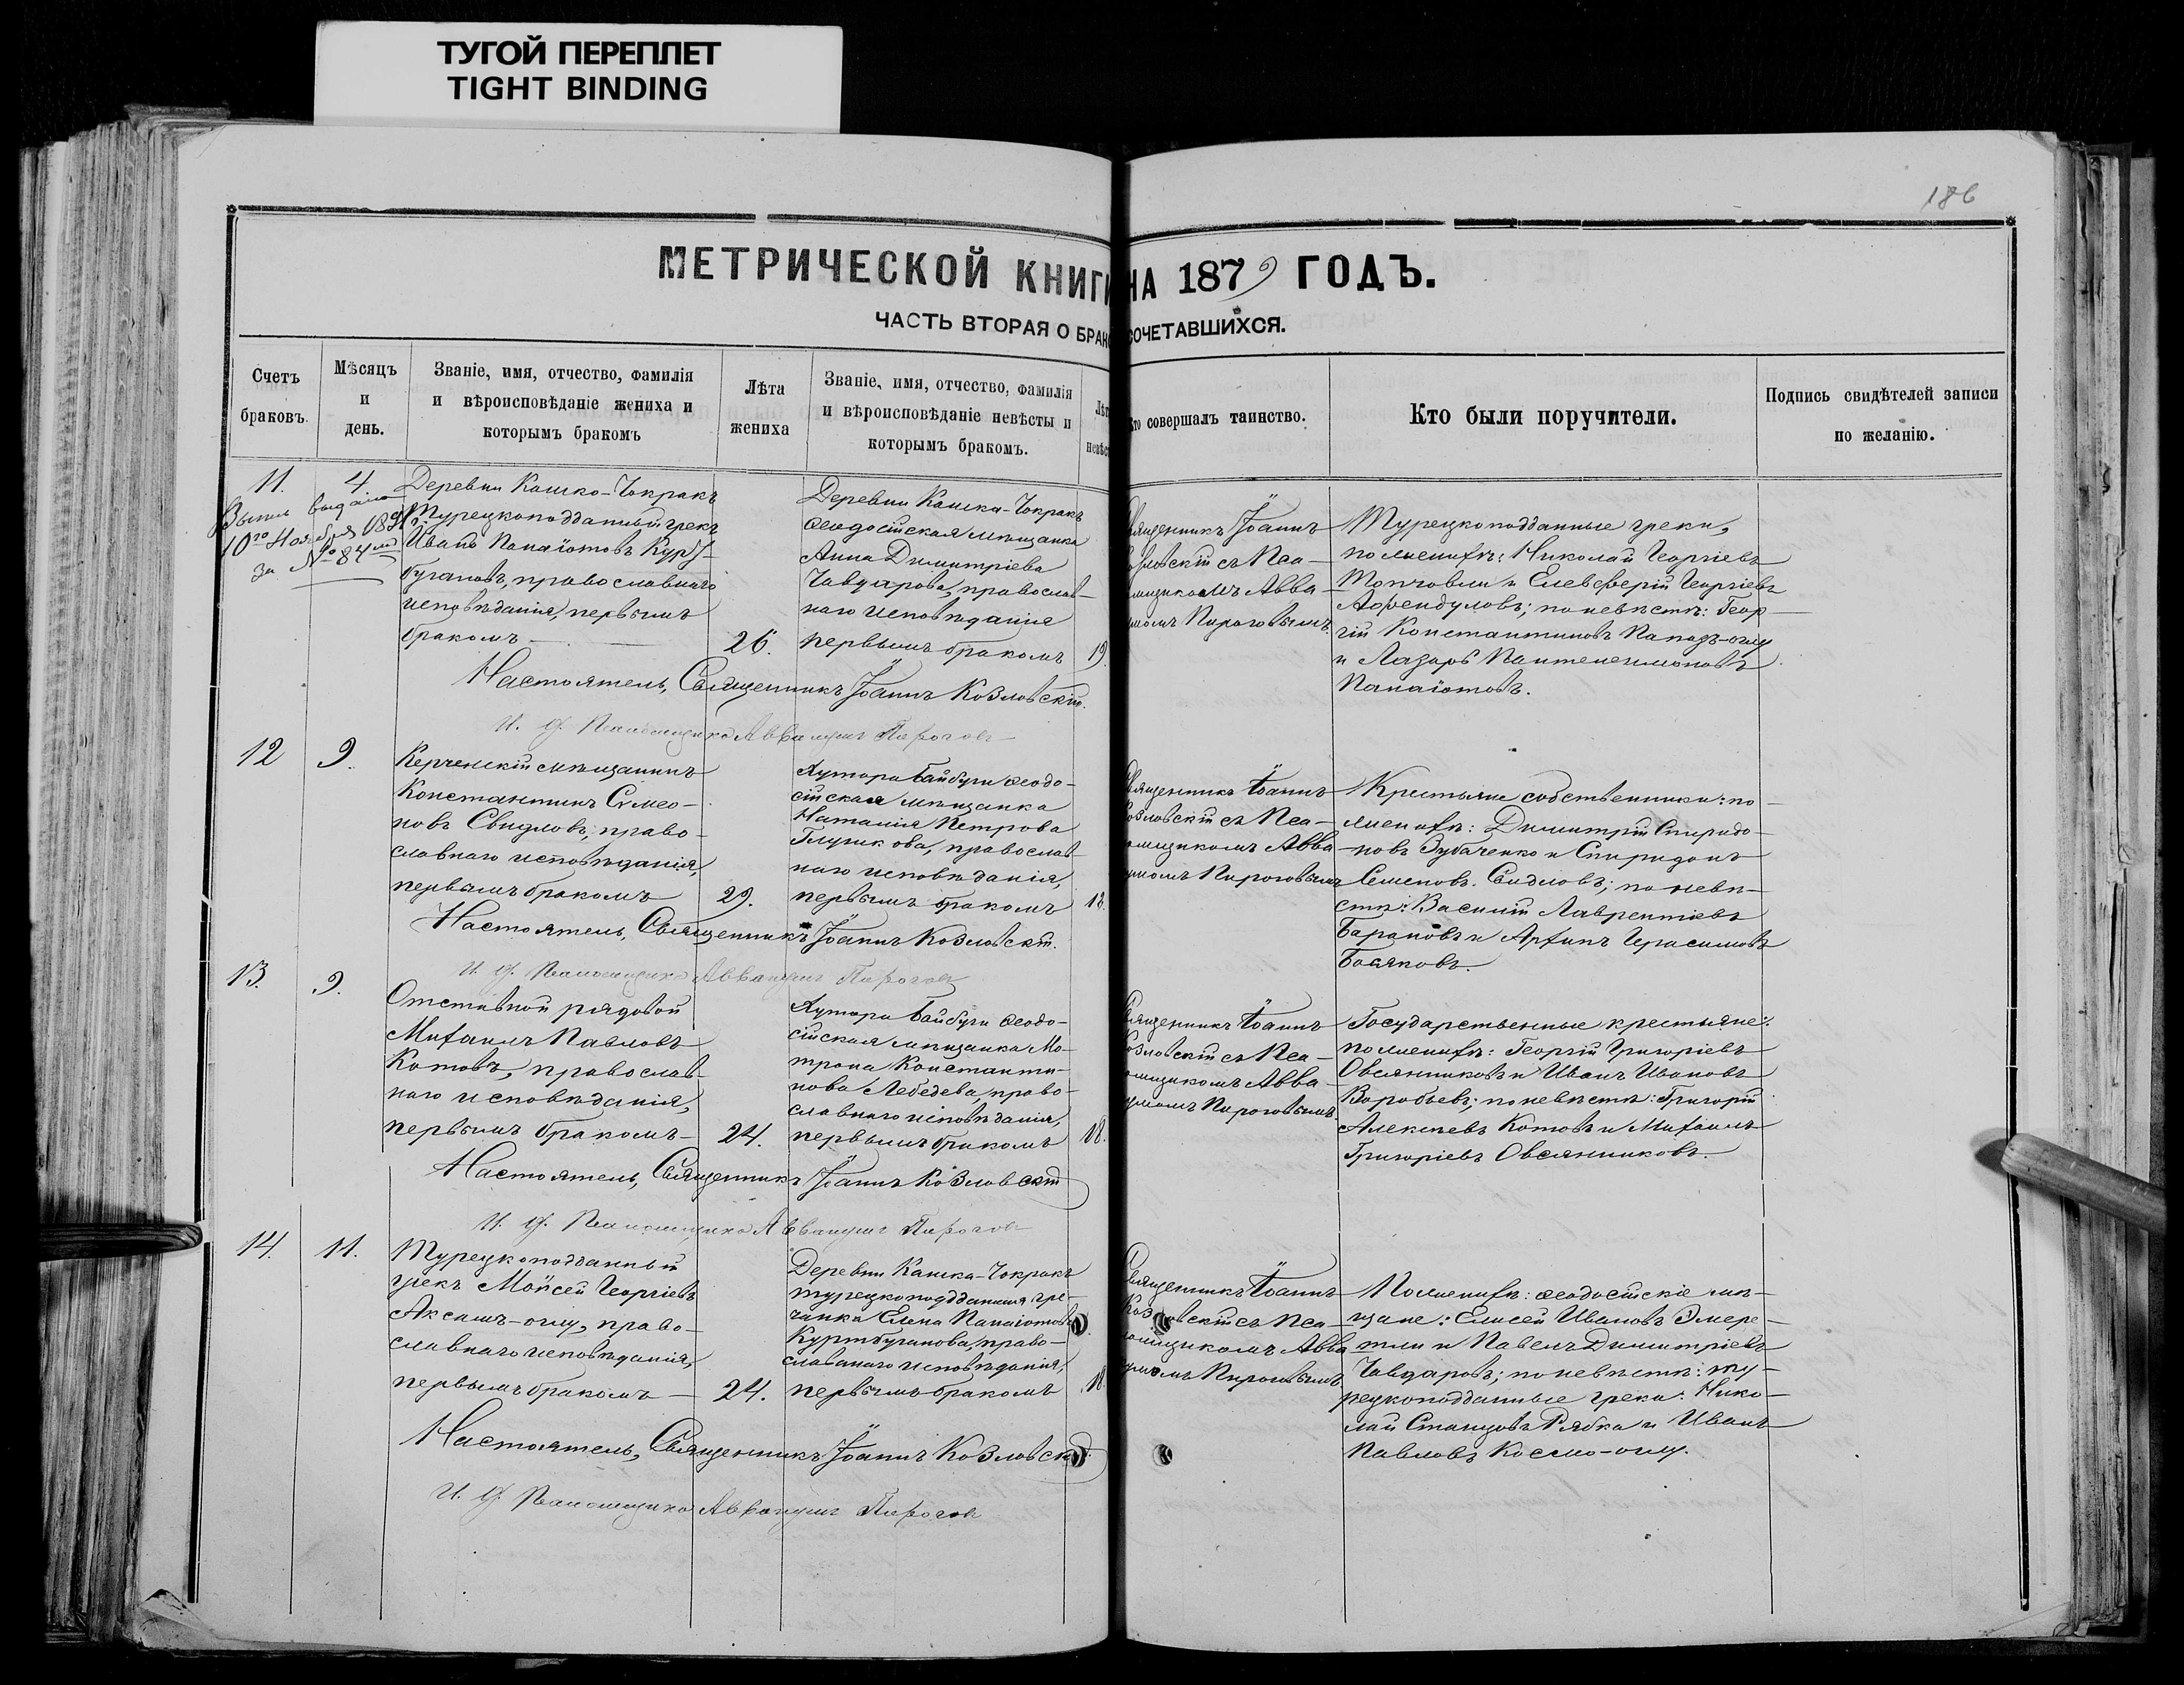 ТУГОЙ ПЕРЕПЛЕТ
TIGHT BINDING
186
МЕТРИЧЕСКОЙ КНИГИ НА 1879 ГОДЪ.
ЧАСТЬ ВТОРАЯ О БРАКОСОЧЕТАВШИХСЯ.
Счетъ
браковъ.
Мѣсяцъ
и
день.
Званіе, имя, отчество, фамилія
и вѣроисповѣданіе жениха и
которымъ бракомъ
Лѣта
жениха
Званіе, имя, отчество, фамилія
и вѣроисповѣданіе невѣсты и
которымъ бракомъ.
Лѣт
невѣс
Кто совершалъ таинство.
Кто были поручители.
Подпись свидѣтелей записи
по желанію.
11.
4.
выдано
10го Ноября 189
за №84
Деревни Кашка-Чокракъ
Турецкоподданный грекъ
Иванъ Панаіотовъ Курт
бугановъ, православнаго
исповѣданія, первымъ
бракомъ
26.
Деревни Кашка-Чокракъ
Ѳеодосійская мѣщанка
Анна Димитріева
Чавдарова, православ-
наго исповѣданія
первымъ бракомъ
19.
Священникъ Іоаннъ
Козловскій съ Пса-
ломщикомъ Авва-
кумомъ Пироговымъ.
Турецкоподданные греки,
по женихѣ: Николай Георгіевъ
Топчовли и Елевѳерій Георгіевъ
Афендуловъ; по невѣстѣ: Геор-
гій Константиновъ Попазъ-оглу
и Лазарь Пантелеимоновъ
Панаіотовъ.
Настоятель, Священникъ Іоаннъ Козловскій.
И. д. Псаломщика Аввакумъ Пироговъ
12
9.
Керченскій мѣщанинъ
Константинъ Симео-
новъ Свидловъ, право-
славнаго исповѣданія,
первымъ бракомъ
29.
Хутора Байбуги Ѳеодо-
сійская мѣщанка
Наталія Петрова
Глушкова, православ-
наго исповѣданія,
первымъ бракомъ
18.
Священникъ Іоаннъ
Козловскій съ Пса-
ломщикомъ Авва-
кумомъ Пироговымъ
Крестьяне собственники: по
женихѣ: Димитрій Спиридо-
новъ Зубаченко и Спиридонъ
Семеновъ Свидловъ; по невѣ-
стѣ: Василій Лаврентіевъ
Барановъ и Архипъ Герасимовъ
Босяковъ.
Настоятель, Священникъ Іоаннъ Козловскій.
И. д. Псаломщика Аввакумъ Пироговъ
13.
9.
Отставной рядовой
Михаилъ Павловъ
Котовъ, православ-
наго исповѣданія,
первымъ бракомъ
24.
Хутора Байбуги Ѳеодо-
сійская мѣщанка Ма-
трона Константи-
нова Лебедева, право-
славнаго исповѣданія,
первымъ бракомъ
18.
Священникъ Іоаннъ
Козловскій съ Пса-
ломщикомъ Авва-
кумомъ Пироговымъ.
Государственные крестьяне:
по женихѣ: Георгій Григоріевъ
Овсянниковъ и Иванъ Ивановъ
Воробьевъ; по невѣстѣ: Григорій
Алексѣевъ Котовъ и Михаилъ
Григоріевъ Овсянниковъ.
Настоятель, Священникъ Іоаннъ Козловскій
И. д. Псаломщика Аввакумъ Пироговъ
14.
11.
Турецкоподданный
грекъ Моѵсей Георгіевъ
Аксамъ-оглу, право-
славнаго исповѣданія,
первымъ бракомъ
24.
Деревни Кашка-Чокракъ
турецкоподданная гре-
чанка Елена Панаіотова
Куртбуганова, право-
славнаго исповѣданія,
первымъ бракомъ
18.
Священникъ Іоаннъ
Козловскій съ Пса-
ломщикомъ Авва-
кумомъ Пироговымъ
По женихѣ: Ѳеодосійскіе мѣ-
щане: Елисей Ивановъ Эмере-
тли и Павелъ Димитріевъ
Чавдаровъ; по невѣстѣ: ту-
рецкоподданные греки: Нико-
лай Рябка и Иванъ
Павловъ Космо-оглу.
Настоятель, Священникъ Іоаннъ Козловскій
И. д. Псаломщика Аввакумъ Пироговъ